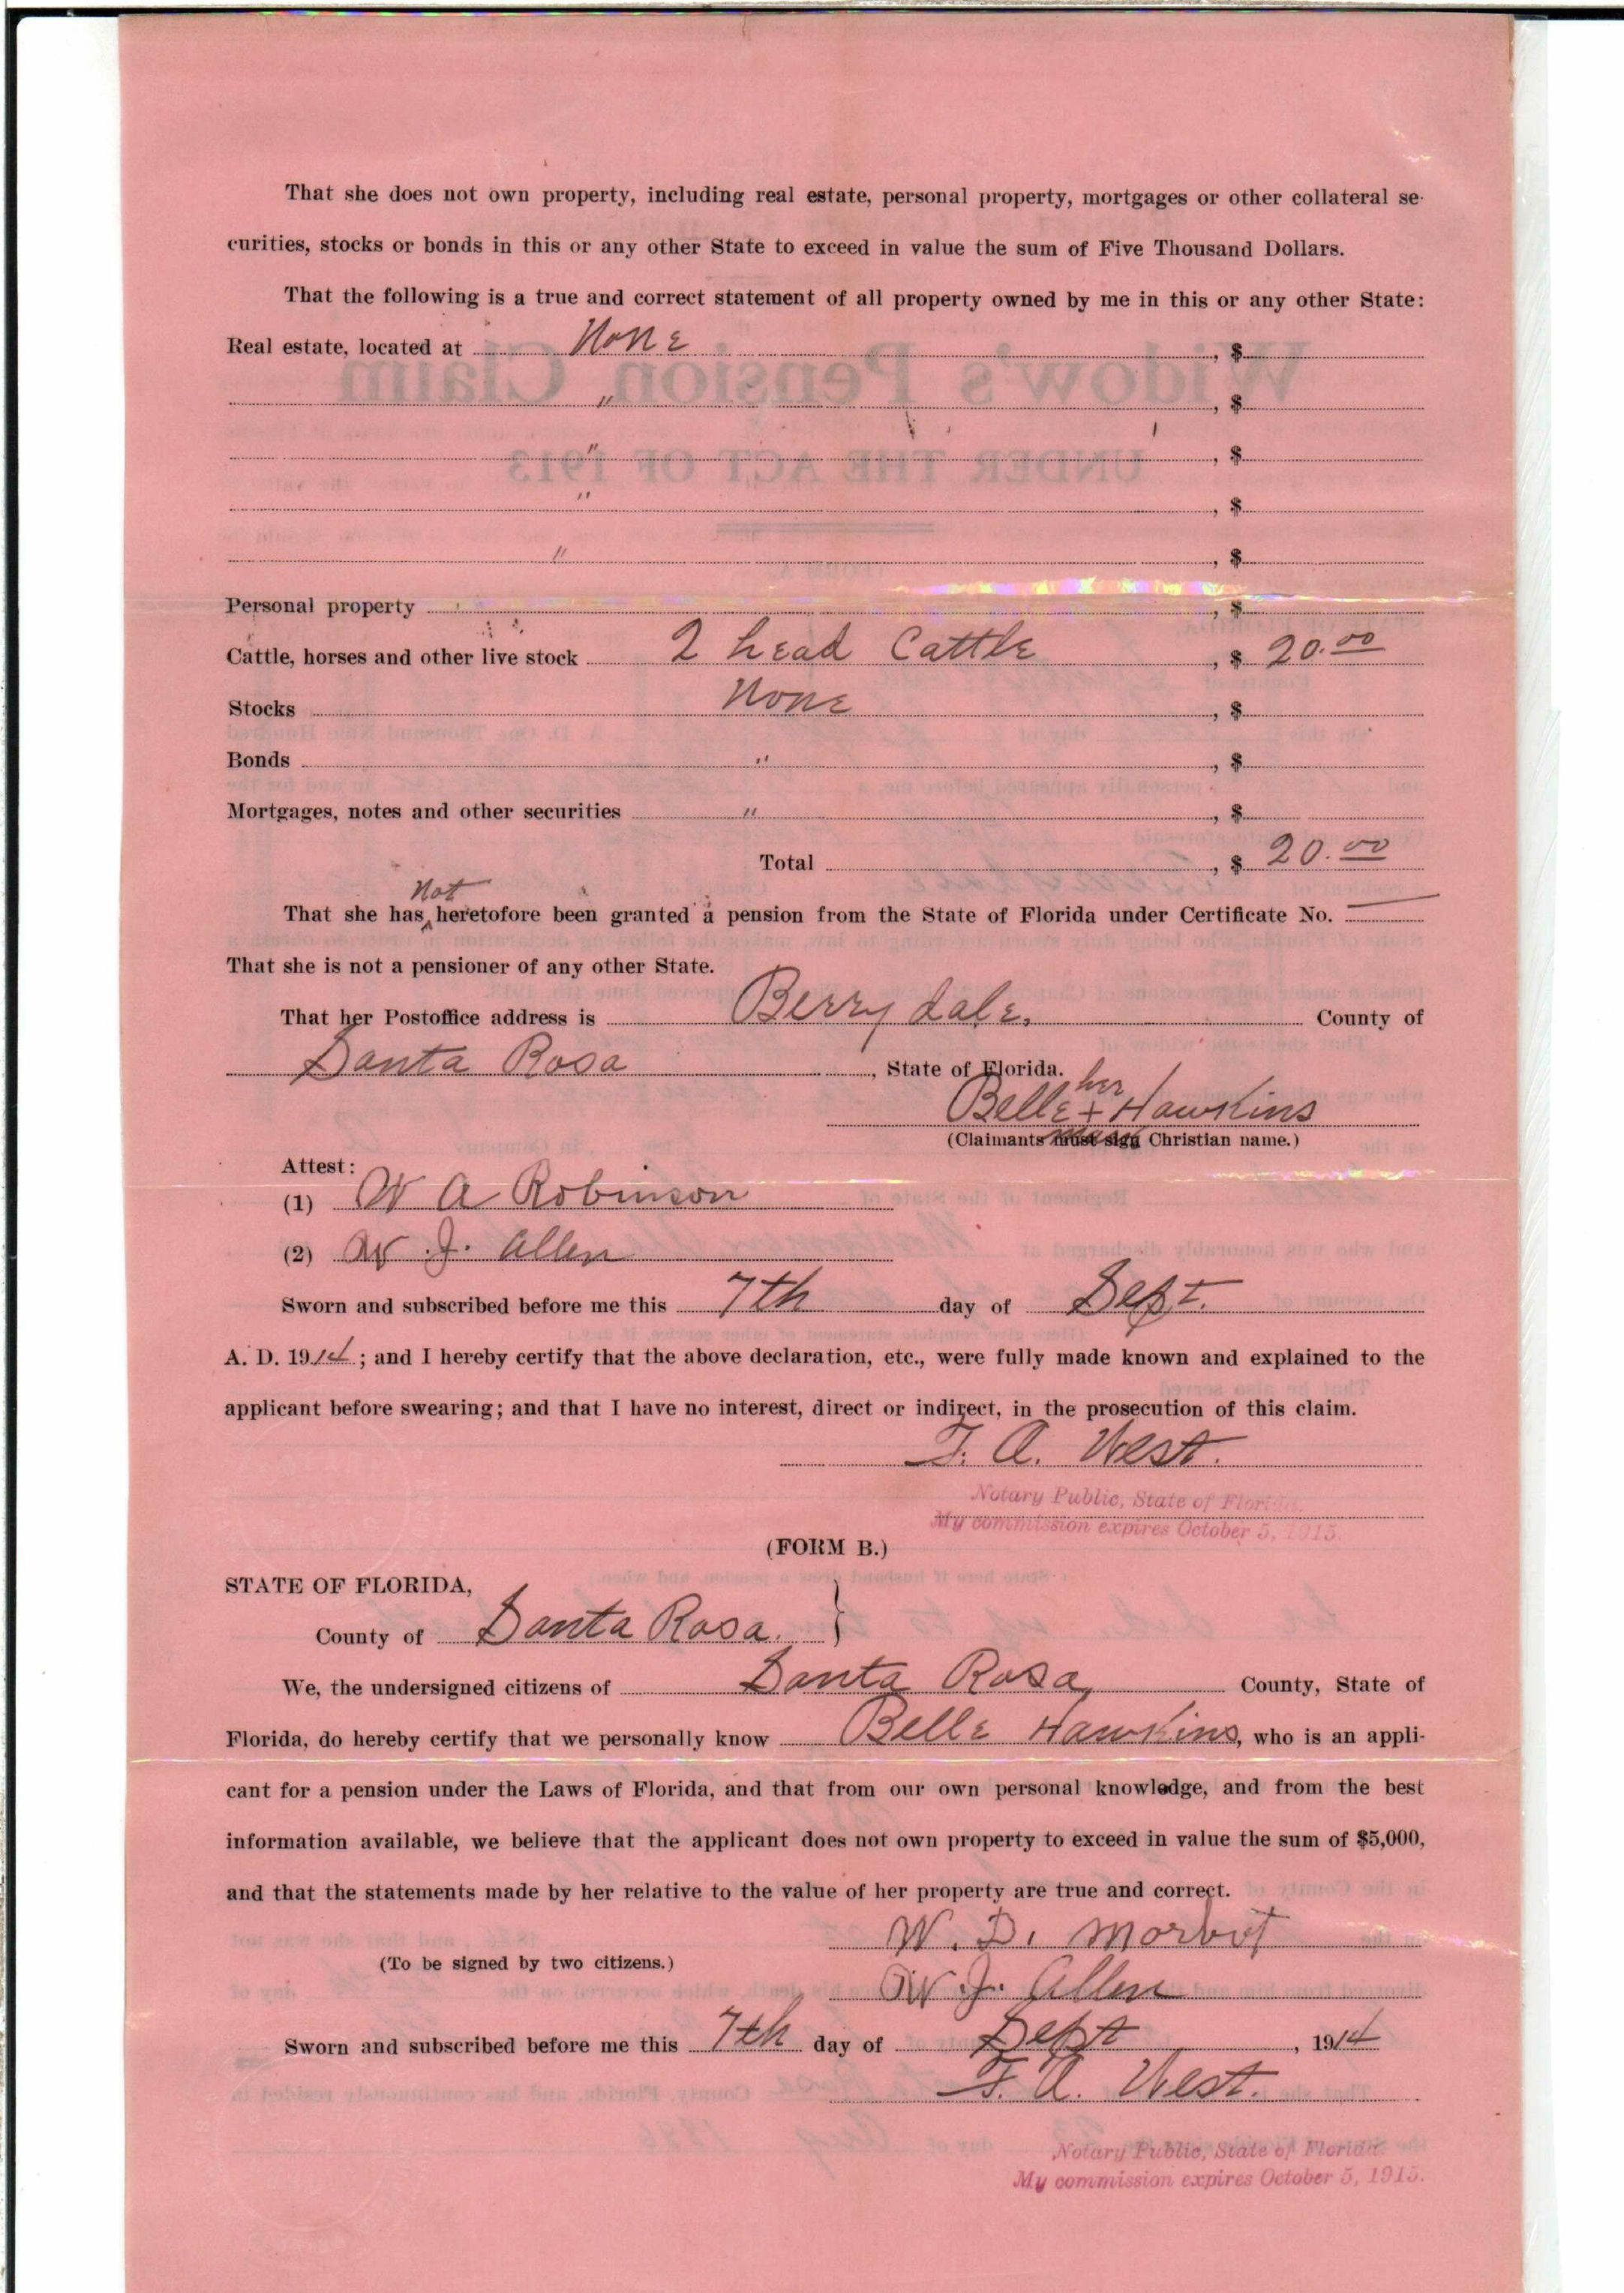 That she does not own property, including real estate, personal property, mortgages or other collateral se-
curities, stocks or bonds in this or any other State to exceed in value the sum of Five Thousand Dollars.
That the following is a true and correct statement of all property owned by me in this or any other State:
Real estate, located at None , $
" , $
" , $
" , $
" , $
Personal property , $
Cattle, horses and other live stock 2 head Cattle , $ 20.00
Stocks None , $
Bonds " , $
Mortgages, notes and other securities " , $
Total , $ 20.00
Not
That she has heretofore been granted a pension from the State of Florida under Certificate No. —
That she is not a pensioner of any other State.
That her Postoffice address is Berrydale, County of
Santa Rosa , State of Florida.
her
Belle + Hawkins
(Claimants must sign Christian name.)
mark
Attest:
(1) W A Robinson
(2) W. J. Allen
Sworn and subscribed before me this 7th day of Sept.
A. D. 1914; and I hereby certify that the above declaration, etc., were fully made known and explained to the
applicant before swearing; and that I have no interest, direct or indirect, in the prosecution of this claim.
T. A. West.
Notary Public, State of Florida.
My commission expires October 5, 1915.
(FORM B.)
STATE OF FLORIDA,
County of Santa Rosa. }
We, the undersigned citizens of Santa Rosa, County, State of
Florida, do hereby certify that we personally know Belle Hawkins, who is an appli-
cant for a pension under the Laws of Florida, and that from our own personal knowledge, and from the best
information available, we believe that the applicant does not own property to exceed in value the sum of $5,000,
and that the statements made by her relative to the value of her property are true and correct.
W. D.
(To be signed by two citizens.)
W. J. Allen
Sworn and subscribed before me this 7th day of Sept , 1914
T. A. West.
Notary Public, State of Florida.
My commission expires October 5, 1915.